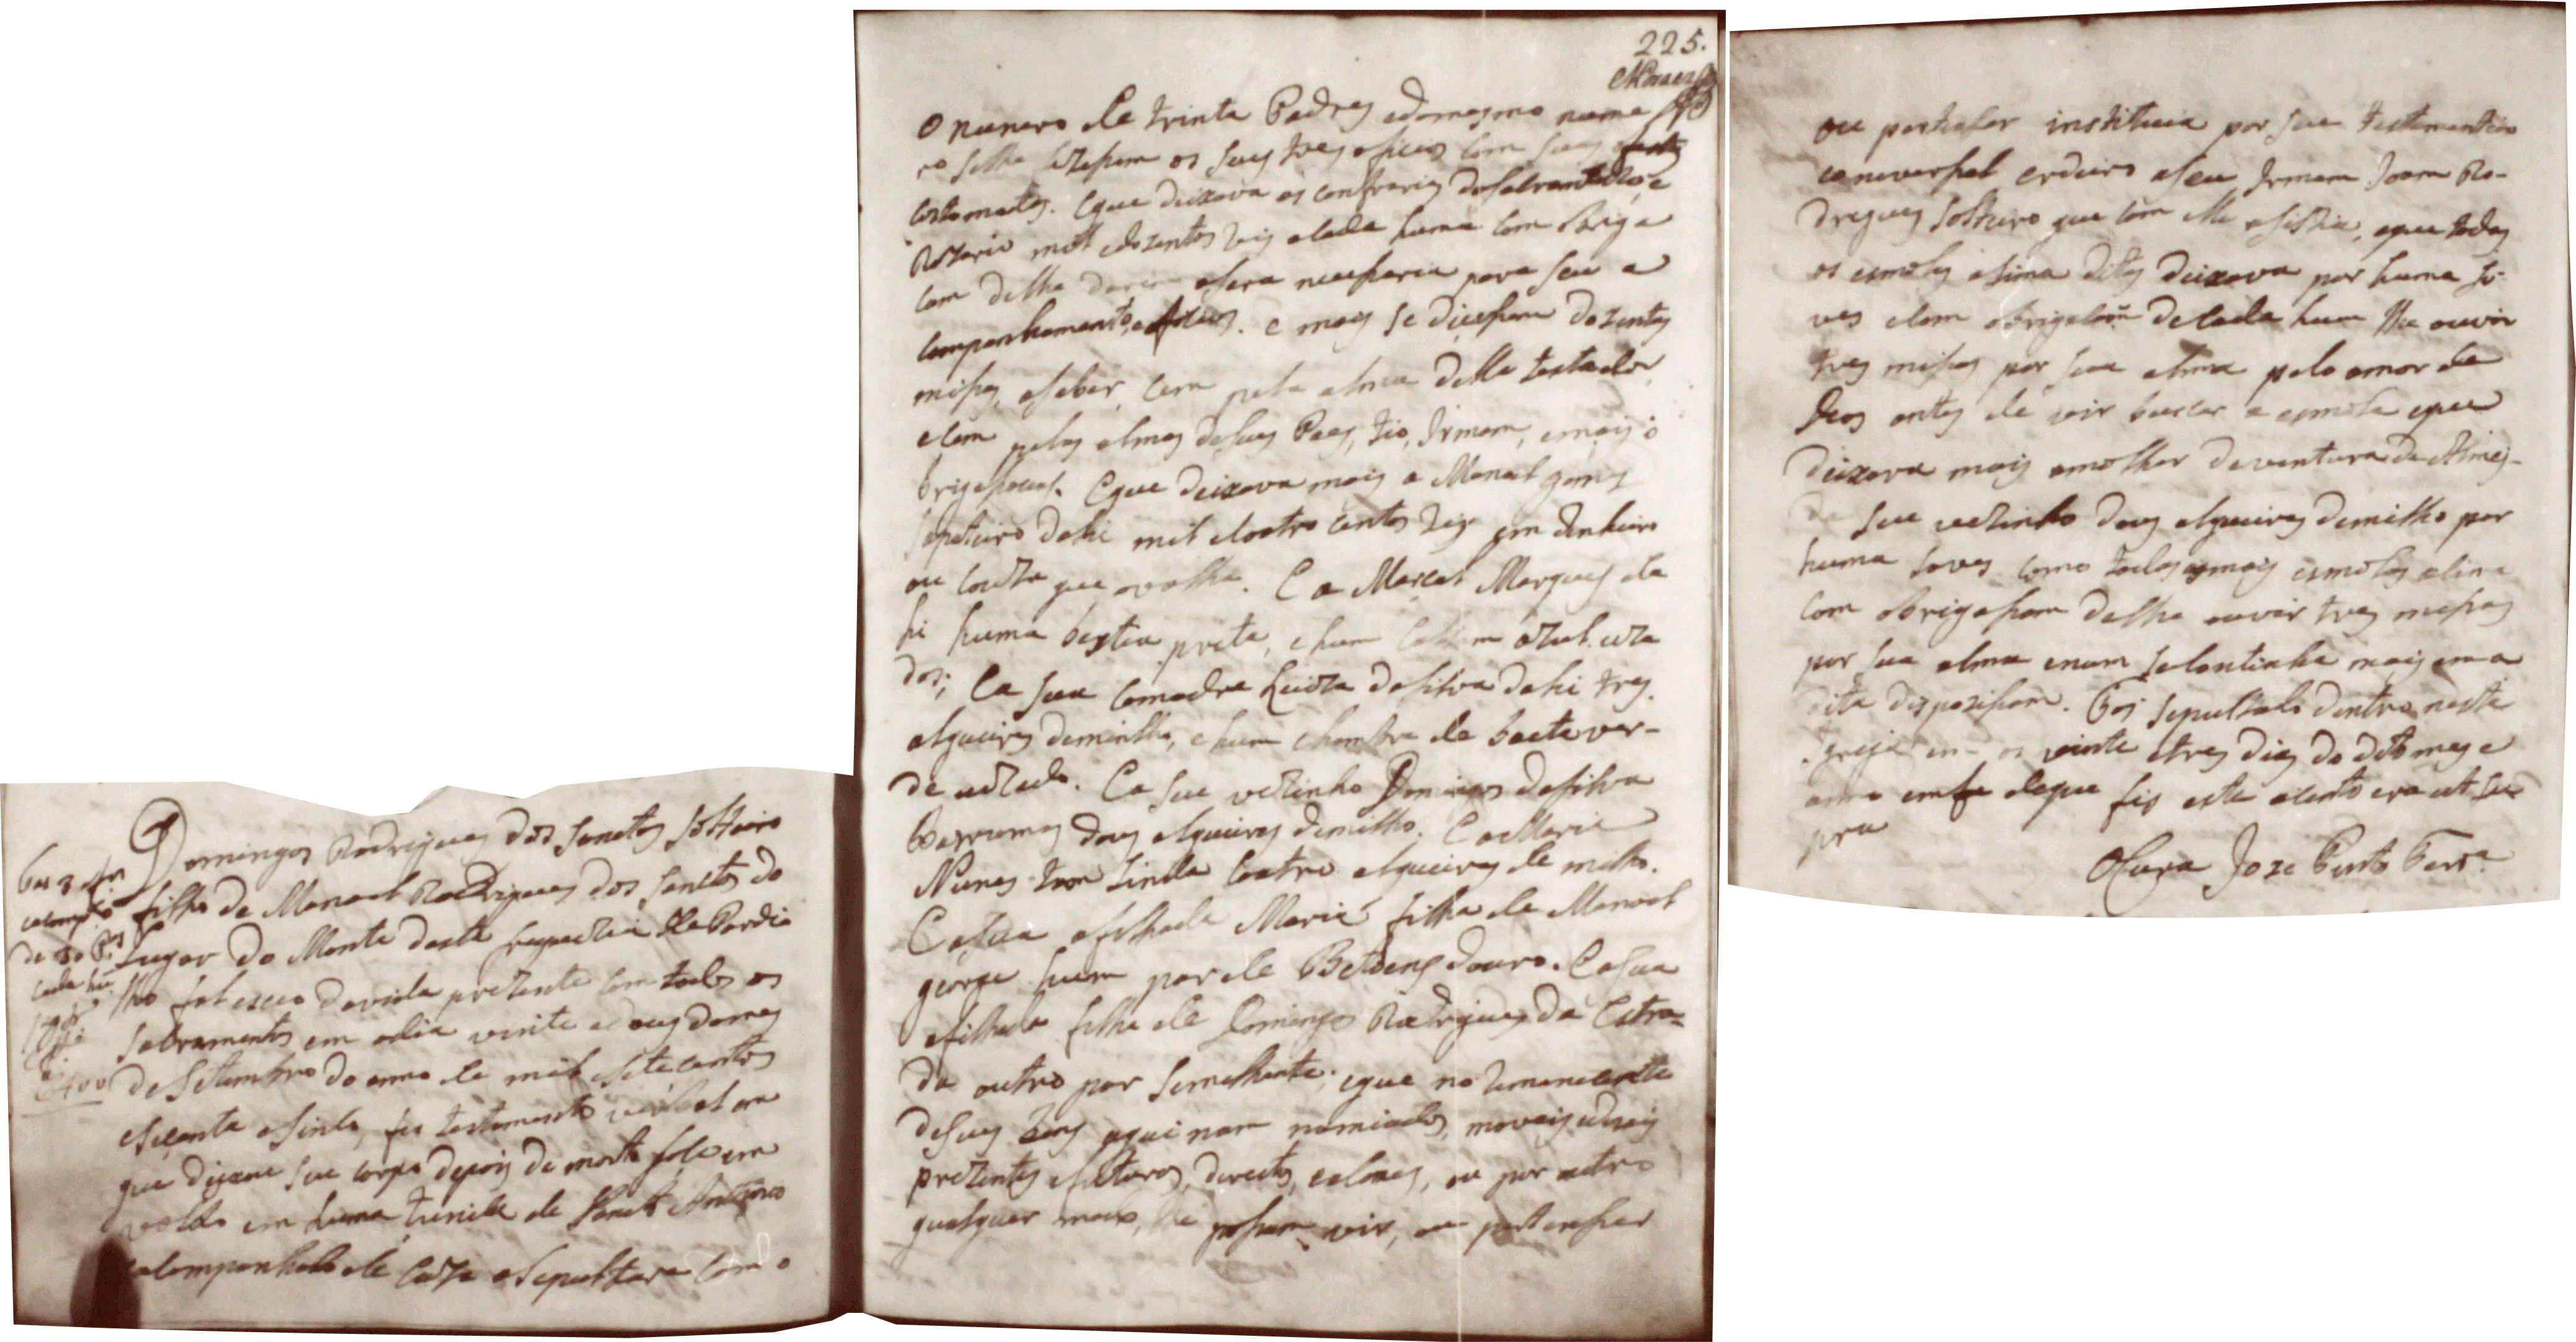 Domingos Rodrigues dos Sanctos solteiro
filho de Manoel Rodrigues dos Sanctos do
Lugar do Monte desta freguezia de Pardi
lho faleceo davida prezente com todos os
Sacramentos em odia vinte edous domes
de Setembro do anno de mil esetecentos
esecenta esinco, fes testamento verbal em
que diceme seu corpo depois de morto foce em
volto em huma tunica de Sancto Antonio
eacompanhado de caza asepultura com o
de 30 P.es
cada hũ
225.
o numero de trinta Padres edomesmo nume
ro selhe fizesem os seus tres oficios com suas
costomadas. Eque deixava as confrarias dosacramento, e
Rozario mil eduzentos reis acada huma com obriga
cam delhe darem asera necesaria para seu a
companhamento, eoficios. e mais se dicesem duzentas
misas, asaber, cem pela alma delle testador
ecem pelas almas deseus Paes, tio, Irmam, emais o
brigasois. Eque deixava mais a Manoel gomes
sapateiro dahi mil ecoatro centos reis em dinheiro
ou couza que ovalha. E a Marcal Marques da
hi huma bestia preta, ehum azul uza
dos; Ea sua comadre Luiza dasilva dahi tres
alqueires demilho, ehum chambre de baeta ver-
de uzado. Ea seu vezinho Domingos dasilva
dous alqueires demilho. E aMaria
Nunes coatro alqueires de milho.
Easua afilhada Maria filha de Manoel
george hum par de Botoens douro. Easua
afilhada filha de Domingos Rodrigues da Estra-
da outro par semelhante; eque no remanecente
deseus bens aqui nam nomiados, moveis ederais
prezentes efuturos, direitos, eacoins, ou por outro
qualquer modo, lhe posam vir, ou pertenser
ou pertenser instituia por seu testamenteiro
euneversal erdeiro aseu Irmam Joam Ro-
drigues solteiro que com elle asistia, eque todas
as esmolas asima ditas deixava por huma so
ves ecom obrigacam decada hum lhe ouvir
tres misas por sua alma pelo amor de
Deos antes de vir buscar a esmola eque
deixava mais amolher deventura de Almei-
da seu vezinho dous alqueires demilho por
huma soves como todas asmais esmolas asima
com obrigasam delhe ouvir tres misas
por sua alma enam secontinha mais em a
dita dispozisam. Foi sepultado dentro nesta
Igreja em os vinte etres dias do dito mes e
anno emfe deque fis este acento era ut su
pra
OCura Joze Pinto Ferr.a